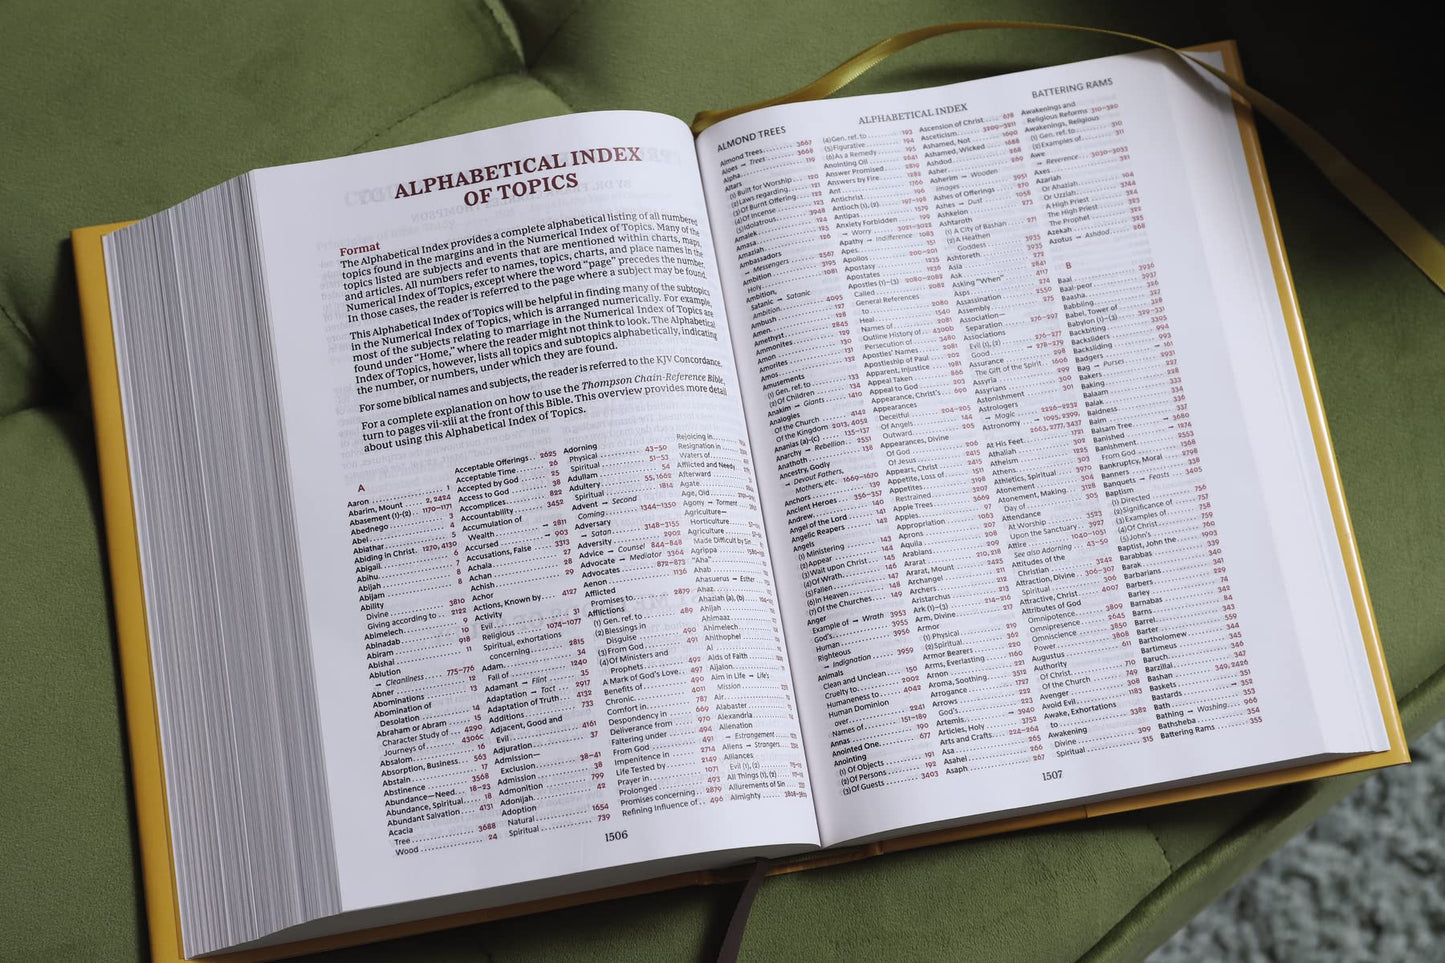 ALPHABETICAL INDEX
OF TOPICS
Format
The Alphabetical Index provides a complete alphabetical listing of all numbered
topics found in the margins and in the Numerical Index of Topics. Many of the
topics listed are subjects and events that are mentioned within charts, maps,
and articles. All numbers refer to names, topics, charts, and place names in the
Numerical Index of Topics, except where the word "page" precedes the number.
In those cases, the reader is referred to the page where a subject may be found.
This Alphabetical Index of Topics will be helpful in finding many of the subtopics
in the Numerical Index of Topics, which is arranged numerically. For example,
most of the subjects relating to marriage in the Numerical Index of Topics are
found under "Home," where the reader might not think to look. The Alphabetical
Index of Topics, however, lists all topics and subtopics alphabetically, indicating
the number, or numbers, under which they are found.
For some biblical names and subjects, the reader is referred to the KJV Concordance.
For a complete explanation on how to use the Thompson Chain-Reference Bible,
turn to pages vii-xiii at the front of this Bible. This overview provides more detail
about using this Alphabetical Index of Topics.
A
Aaron 1
Abarim, Mount 2, 2424
Abasement (1)–(2) 1170–1171
Abednego 3
Abel 4
Abiathar 5
Abiding in Christ 1270, 4130
Abigail 6
Abihu 7
Abijah 8
Abijam 8
Ability
Divine 3810
Giving according to 2122
Abimelech 9
Abinadab 10
Abiram 918
Abishai 11
Ablution
→ Cleanliness 775–776
Abner 12
Abominations 13
Abomination of
Desolation 14
Abraham or Abram 15
Character Study of 4290
Journeys of 4306c
Absalom 16
Absorption, Business 563
Abstain 17
Abstinence 3568
Abundance—Need 18–23
Abundance, Spiritual 18
Abundant Salvation 4131
Acacia
Tree 3688
Wood 24
Acceptable Offerings 2625
Acceptable Time 26
Accepted by God 25
Access to God 38
Accomplices 822
Accountability 3452
Accumulation of
Wealth → 2811
Accursed → 903
Accusations, False 3313
Achaia 27
Achan 28
Achish 29
Achor
Actions, Known by 4127
Activity
Evil 31
Religious 1074–1077
Spiritual, exhortations
concerning 2815
Adam 34
Fall of 1240
Adamant → Flint 35
Adaptation → Tact 2917
Adaptation of Truth 4132
Additions 733
Adjacent, Good and
Evil 4161
Adjuration 37
Admission—
Exclusion 38–41
Admission 38
Admonition 799
Adonijah 42
Adoption
Natural 1654
Spiritual 739
Adorning
Physical 43–50
Spiritual 51–53
Adullam 54
Adultery 55, 1662
Spiritual 1814
Advent → Second
Coming 1344–1350
Adversary
→ Satan 3148–3155
Adversity 2902
Advice → Counsel 844–848
Advocate → Mediator 3364
Advocates 872–873
Aenon 1136
Afflicted
Promises to 2879
Afflictions
(1) Gen. ref. to 489
(2) Blessings in
Disguise 490
(3) From God 491
(4) Of Ministers and
Prophets 492
A Mark of God's Love 497
Benefits of 490
Chronic 4011
Comfort in 787
Despondency in 669
Deliverance from 970
Faltering under 494
From God 491
Impenitence in 2714
Life Tested by 2149
Prayer in 1071
Prolonged 493
Promises concerning 2879
Refining Influence of 496
Rejoicing in
Resignation in
Waters of
Afflicted and Needy
Afterward
Agate
Age, Old
Agony → Torment
Agriculture—
Horticulture
Agriculture
Made Difficult by Sin
Agrippa
"Aha"
Ahab
Ahasuerus → Esther
Ahaz
Ahaziah (a), (b)
Ahijah
Ahimaaz
Ahimelech
Ahithophel
Ai
Aids of Faith
Aijalon
Aim in Life → Life's
Mission
Air
Alabaster
Alexandria
Alienation
→ Estrangement
Aliens → Strangers
Alliances
Evil (1), (2)
All Things (1), (2)
Allurements of Sin
Almighty
1506
ALMOND TREES
ALPHABETICAL INDEX
BATTERING RAMS
Almond Trees 3667
Aloes → Trees 3668
Alpha 119
Altars
(1) Built for Worship 120
(2) Laws regarding 121
(3) Of Burnt Offering 122
(4) Of Incense 123
(5) Idolatrous 3948
Amalek 124
Amasa 125
Amaziah 126
Ambassadors
→ Messengers 2587
Ambition 3195
Holy 1081
Ambition,
Satanic → Satanic
Ambition 4095
Ambush 127
Amen 128
Amethyst 2845
Ammonites 129
Amon 130
Amorites 131
Amos 132
Amusements
(1) Gen. ref. to 133
(2) Of Children 134
Anakim → Giants 1410
Analogies
Of the Church 4142
Of the Kingdom 2013, 4052
Ananias (a)–(c) 135–137
Anarchy → Rebellion 2551
Anathoth 138
Ancestry, Godly
→ Devout Fathers,
Mothers, etc. 1669–1670
Anchors 139
Ancient Heroes 356–357
Andrew 140
Angel of the Lord 141
Angelic Reapers 142
Angels
(1) Ministering 143
(2) Appear 144
(3) Wait upon Christ 145
(4) Of Wrath 146
(5) Fallen 147
(6) In Heaven 148
(7) Of the Churches 149
Anger
Example of → Wrath 3953
God's 3955
Human 3956
Righteous
→ Indignation 3959
Animals
Clean and Unclean 150
Cruelty to 2002
Humaneness to 4042
Human Dominion
over 2241
Names of 151–189
Annas 190
Anointed One 677
Anointing
(1) Of Objects 191
(2) Of Persons 192
(3) Of Guests 3403
(4) Gen. ref. to 193
(5) Figurative 194
(6) As a Remedy 195
Anointing Oil 2641
Answer Promised 2810
Answers by Fire 1285
Ant 1766
Antichrist 196
Antioch (1), (2) 197–198
Antipas 1579
Anxiety Forbidden 199
→ Worry 3021–3022
Apathy → Indifference 1083
Apes 151
Apollos 200–201
Apostasy 1235
Apostates 1236
Apostles (1)–(3) 2080–2082
Called 2082
General References
to 2080
Heal 1540
Names of 2081
Outline History of 4300b
Persecution of 3480
Apostles' Names 2081
Apostleship of Paul 202
Apparent, Injustice 1981
Appeal Taken 866
Appeal to God 203
Appearance, Christ's 690
Appearances
Deceitful 204–205
Of Angels 144
Outward 205
Appearances, Divine
Of God 2415
Of Jesus 2415
Appears, Christ 2415
Appetite, Loss of 1511
Appetites 3198
Restrained 3207
Apple Trees 3669
Apples 97
Appropriation 1063
Aprons 207
Aquila 208
Arabians 209
Ararat 210, 218
Ararat, Mount 2425
Archangel 211
Archers 212
Aristarchus 213
Ark (1)–(3) 214–216
Arm, Divine 217
Armor
(1) Physical 219
(2) Spiritual 362
Armor Bearers 220
Arms, Everlasting 1160
Arnon 221
Aroma, Soothing 3512
Arrogance 1727
Arrows 222
God's 223
Artemis → 3040
Articles, Holy 3752
Arts and Crafts 224–264
Asa 265
Asahel 266
Asaph 267
Ascension of Christ 678
Asceticism 3209–3211
Ashamed, Not 1690
Ashamed, Wicked 1688
Ashdod 268
Asher 269
Asherim → Wooden
Images 3951
Ashes of Offerings 270
Ashes → Dust 1058
Ashkelon 273
Ashtaroth
(1) A City of Bashan 271
(2) A Heathen
Goddess 3935
Ashtoreth 3935
Asia 272
Ask 2841
Asking "When" 4117
Asps 274
Assassination 2550
Assembly 275
Association—
Separation 276–297
Associations
Evil (1), (2) 276–277
Good → 278–279
Assurance 298
The Gift of the Spirit 1606
Assyria 299
Assyrians 300
Astonishment 301
Astrologers
→ Magic 2226–2232
Astronomy → 1095, 2399,
2663, 2777, 3437
At His Feet 302
Athaliah 1225
Atheism 303
Athens 305
Athletics, Spiritual 3970
Atonement 304
Atonement, Money 3128
Day of 305
Attendance
At Worship 3523
Upon the Sanctuary 3927
Attire 1040–1051
See also Adorning 43–50
Attitudes of the
Christian 3242
Attraction, Divine 306–307
Spiritual 307
Attractive, Christ 4006
Attributes of God
Omnipotence 3809
Omnipresence 2645
Omniscience 3850
Power 3808
Augustus 611
Authority
Of Christ 710
Of the Church 749
Avenger 308
Avoid Evil 1183
Awake, Exhortations
to 3382
Awakening
Divine 309
Spiritual 315
Awakenings and
Religious Reforms 310–320
Awakenings, Religious
(1) Gen. ref. to 310
(2) Examples of 311
Awe
→ Reverence 3030–3033
Axes 321
Azariah
Or Ahaziah 104
Or Uzziah 3744
A High Priest 324
the High Priest 323
The Prophet 322
Azekah 325
Azotus → Ashdod 268
B
Baal 3936
Baal-peor 3937
Baasha 326
Babbling 327
Babel, Tower of 328
Babylon (1)–(3) 329–331
Backbiting 3305
Backsliders 994
Backsliding 993
Badgers → 161
Bag → Purses 331
Bakers 228
Baking 227
Balaam 333
Balak 334
Baldness 336
Balm 337
Balsam Tree → 3680
Banished → 1874
Banishment 2553
From God 1568
Bankruptcy, Moral 2798
Banners 338
Banquets → Feasts 3405
Baptism
(1) Directed 756
(2) Significance of 758
(3) Examples of 757
(4) Of Christ 759
(5) John's 760
Baptist, John the 1903
Barabbas 339
Barak 340
Barbarians 341
Barbers 229
Barley 74
Barnabas 342
Barns 84
Barrel 343
Barren 559
Barter 344
Bartholomew 345
Bartimeus 346
Baruch 347
Barzillai 348
Bashan 349, 2426
Baskets → 351
Bastards 352
Bath 353
Bathing → Washing 966
Bathsheba 354
Battering Rams 355
1507